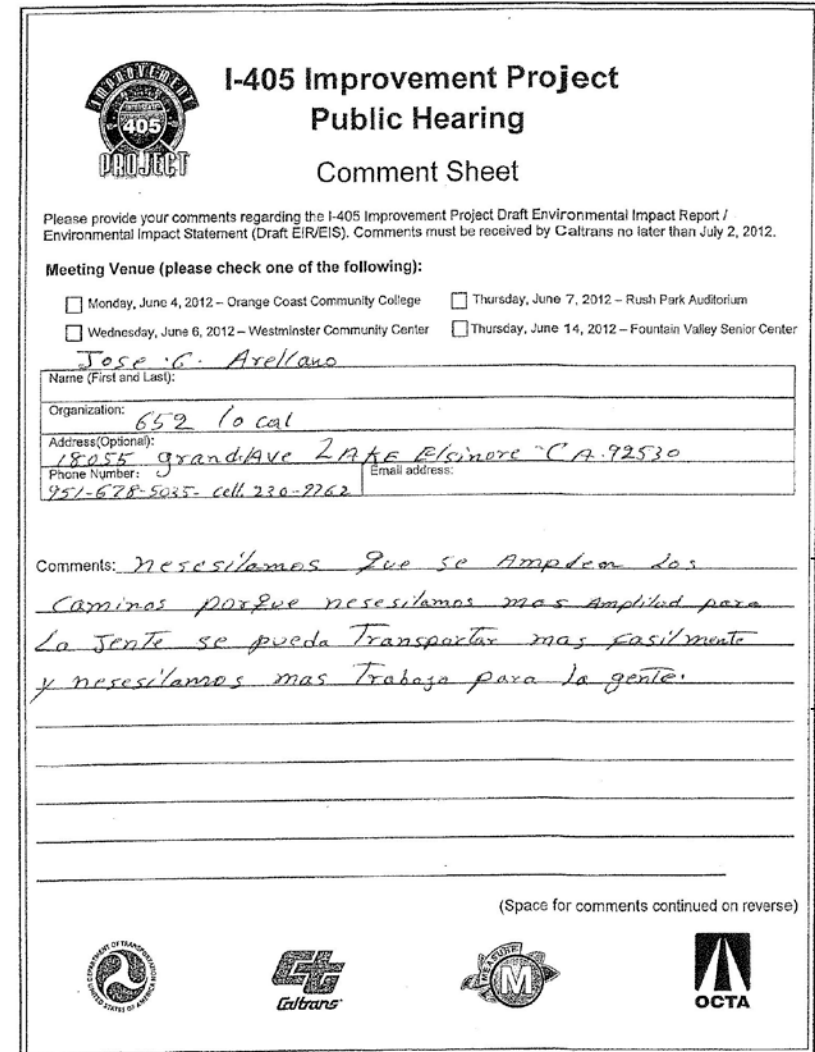 IMPROVEMENT
INTERSTATE
405
PROJECT
I-405 Improvement Project
Public Hearing
Comment Sheet
Please provide your comments regarding the I-405 Improvement Project Draft Environmental Impact Report /
Environmental Impact Statement (Draft EIR/EIS). Comments must be received by Caltrans no later than July 2, 2012.
Meeting Venue (please check one of the following):
Monday, June 4, 2012 – Orange Coast Community College
Thursday, June 7, 2012 – Rush Park Auditorium
Wednesday, June 6, 2012 – Westminster Community Center
Thursday, June 14, 2012 – Fountain Valley Senior Center
Jose G. Arellano
Name (First and Last):
Organization: 652 local
Address(Optional):
18055 grand Ave LAKE Elsinore CA. 92530
Phone Number:
Email address:
951-678-5035- cell. 230-9762
Comments: nesesitamos que se Ampleen Los
Caminos porque nesesitamos mas Amplitud para
La Jente se pueda Transportar mas fasilmente
y nesesitamos mas Trabajo para la gente.
(Space for comments continued on reverse)
DEPARTMENT OF TRANSPORTATION
UNITED STATES OF AMERICA
Caltrans
MEASURE
M
OCTA